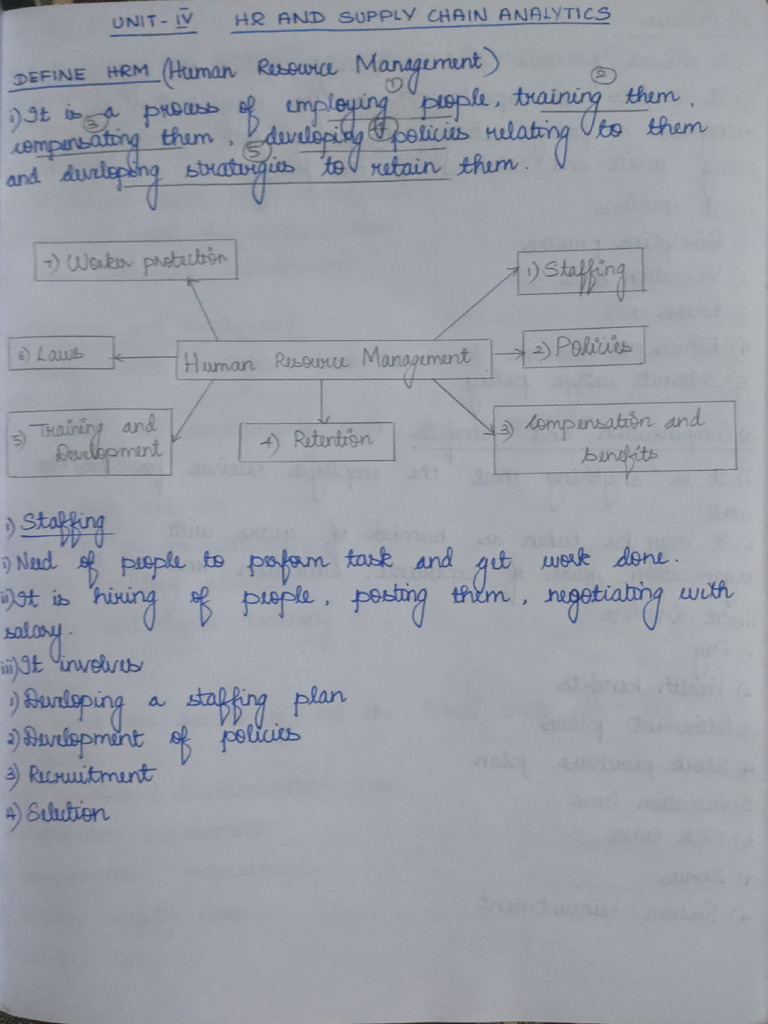 UNIT-IV HR AND SUPPLY CHAIN ANALYTICS
DEFINE HRM (Human Resource Management)
① ②
i) It is a process of employing people, training them,
③ ④
compensating them, developing policies relating to them
⑤
and developing stratergies to retain them.
7) Worker protection
1) Staffing
6) Laws
Human Resource Management
2) Policies
5) Training and
Development
4) Retention
3) Compensation and
benefits
1) Staffing
i) Need of people to perform task and get work done.
ii) It is hiring of people, posting them, negotiating with
salary.
iii) It involves
1) Developing a staffing plan
2) Development of policies
3) Recruitment
4) Selection